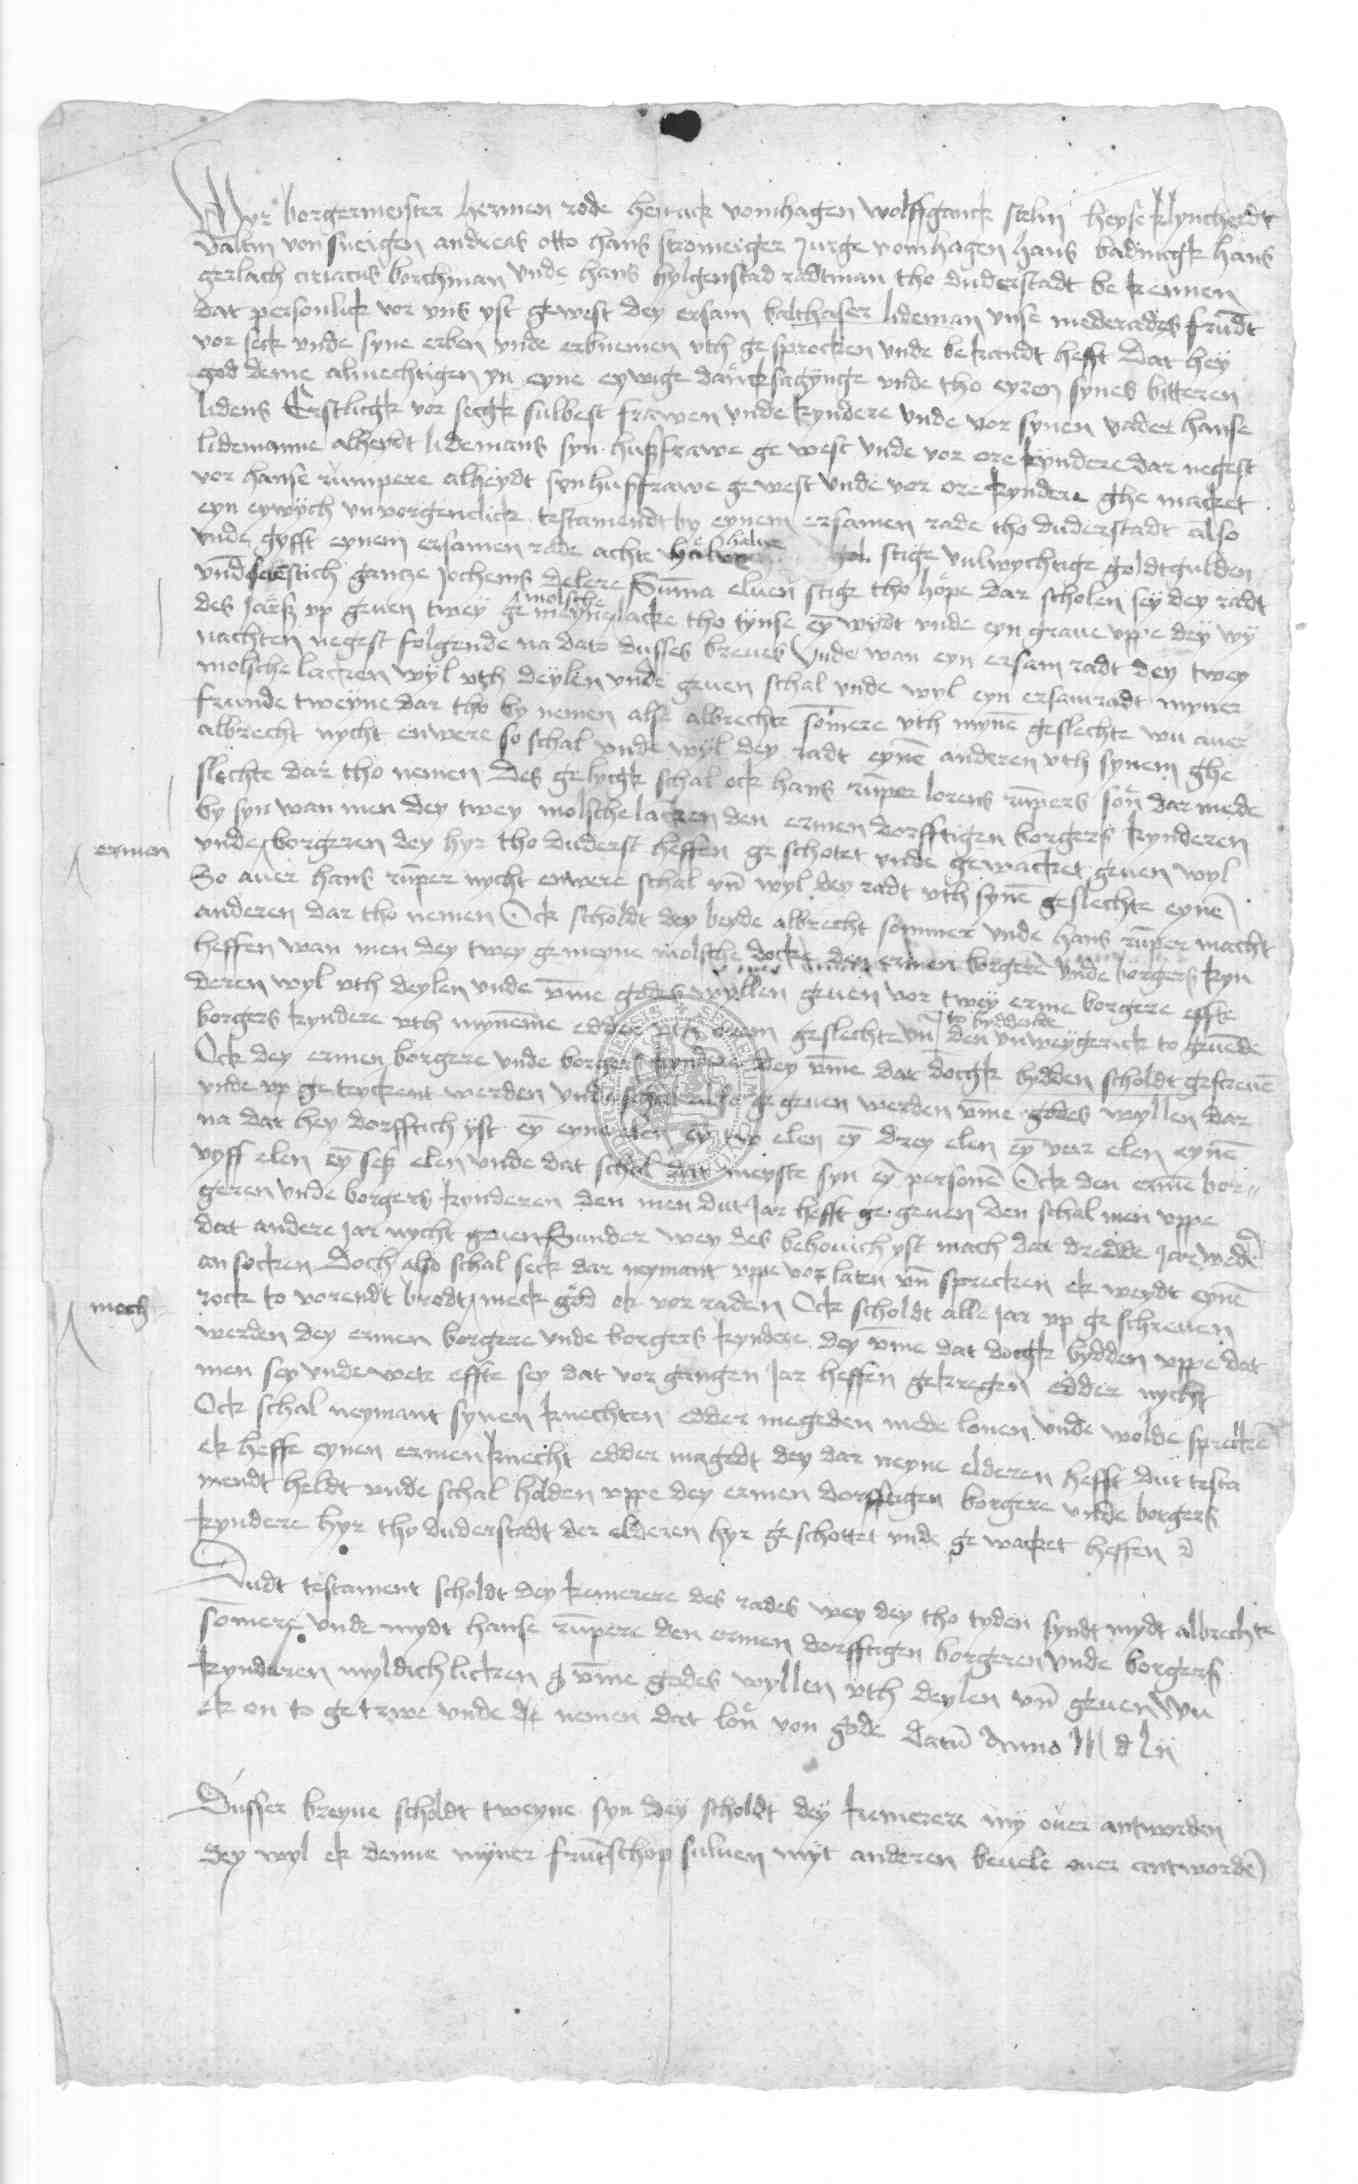 Wyr borgermeister hermen rode henrick vomhagen wolffganck stelin heyse klyncherdt
valtin von sueigen andreas otto hans stromeiger Jurge vomhagen hans badungk hans
gerlach ciriacus borchman vnde hans hylgenstad radtman tho duderstadt be kennen
dat personlick vor vns yst gewest dey ersam balthaser lideman vnse mederades frundt
vor seck vnde syne erben vnde erbnemen vth ge sprocken vnde be kandt hefft Dat hey
god deme almechtigen yn eyne eywige dancksagynge vnde tho eyren synes bitteren
lidens Erstlick vor seegk sulbest frawen vnde kyndere vnde vor synen vader hanse
lidemanne alheydt lidemans syn husfrawe ge west vnde vor ore kyndere dar negest
vor hanse rumpere alheydt syn husfrawe gewest vnde vor ore kyndere ghe macket
eyn eywych vnvorgenclick testamendt by eynem ersamen rade tho duderstadt also
vnde gyfft eynem ersamen rade achte halue stige vulwychtige goldtgulden
vnd sestich gantze Jochems delere Summa eluen stige tho hope dar scholen sey dey radt
des Jars vp geuen twey ge meyne molsche lacke tho tynse eyn wydt vnde eyn graue vppe dey wy
nachten negest folgende na dato dusses breues Vnde wan eyn ersam radt dey twey
molsche lacken wyl vth deylen vnde geuen schal vnde wyl eyn ersamradt myner
frunde tweyne dar tho by nemen alse albrechte sommere vth myne geslechte wu auer
albrecht nycht enwere so schal vnde wyl dey radt eyne anderen vth synem ghe
slechte dar tho nemen Des gelygk schal ock hans rumper lorens rumpers son dar mede
by syn wan men dey twey molsche lacken den ermen dorfftigen borgers kynderen
vnde ermen borgeren dey hyr tho duderst heffen ge schotet vnde gewacket geuen wyl
So auer hans rumper nycht enwere schal vn wyl dey radt vth syne geslechte eyne
anderen dar tho nemen Ock scholdt dey beyde albrecht sommer vnde hans rumper macht
heffen wan men dey twey gemeyne molsche docke den ermen borgere vnde borgers kyn
deren wyl vth deylen vnde vme godes wyllen geuen vor twey erme borgere effte
borgers kyndere vth myneme edder vth orem geslechte vn to byddende den vnweygerick to geuende
Ock dey ermen borgere vnde borgers kyndere dey vme dat docgk bydden scholdt gescreue
vnde vp ge teyckent werden vnde ge geuen werden vme godes wyllen dar
na dat hey dorfftich yst ey eyne elen ey two elen ey drey elen ey veir elen eyne
vyff elen ey seß elen vnde dat schal dat meyste syn ey personen Ock den erme bor
geren vnde borgers kynderen den men dut Jar hefft ge geuen den schal men vppe
dat andere Jar nycht geuen Sunder wey des behouich yst mach dat dredde Jar weder
an socken Doch also schal seck dar neymant vppe vor laten vn sprecken ek weydt eyne
rock to vorendt brodt mach meck god ok vor raden Ock scholdt alle Jar vp ge schreuen
werden dey ermen borgere vnde borgers kyndere dey vme dat docgk bydden vppe dat
men sey vnde wete effte sey dat vor gangen Jar heffen gekregen edder nycht
Ock schal neymant synen knechten edder megeden mede lonen vnde wolde sprecken
ek heffe eynen ermen knecht edder magedt dey dar neyne elderen hefft dut testa
mendt heldt vnde schal holden vppe dey ermen dorfftigen borgere vnde borgers
kyndere hyr tho duderstadt der elderen hyr ge schottet vnde ge wacket heffen
Dudt testament scholdt dey kemerere des rades wey dey tho tyden syndt mydt albrechte
somere vnde mydt hanse rumpere den ermen dorfftigen borgeren vnde borgers
kynderen myldichlicken vme godes wyllen vth deylen vn geuen Wu
ek on to getrwe vnde nemen dat lon von gode Datu Anno M d Lij
Dusser breyue scholdt tweyne syn dey scholdt dey kemerere my ouer antworden
dey wyl ek denne myner fruntschop suluen myt anderen beuele ouer antworden